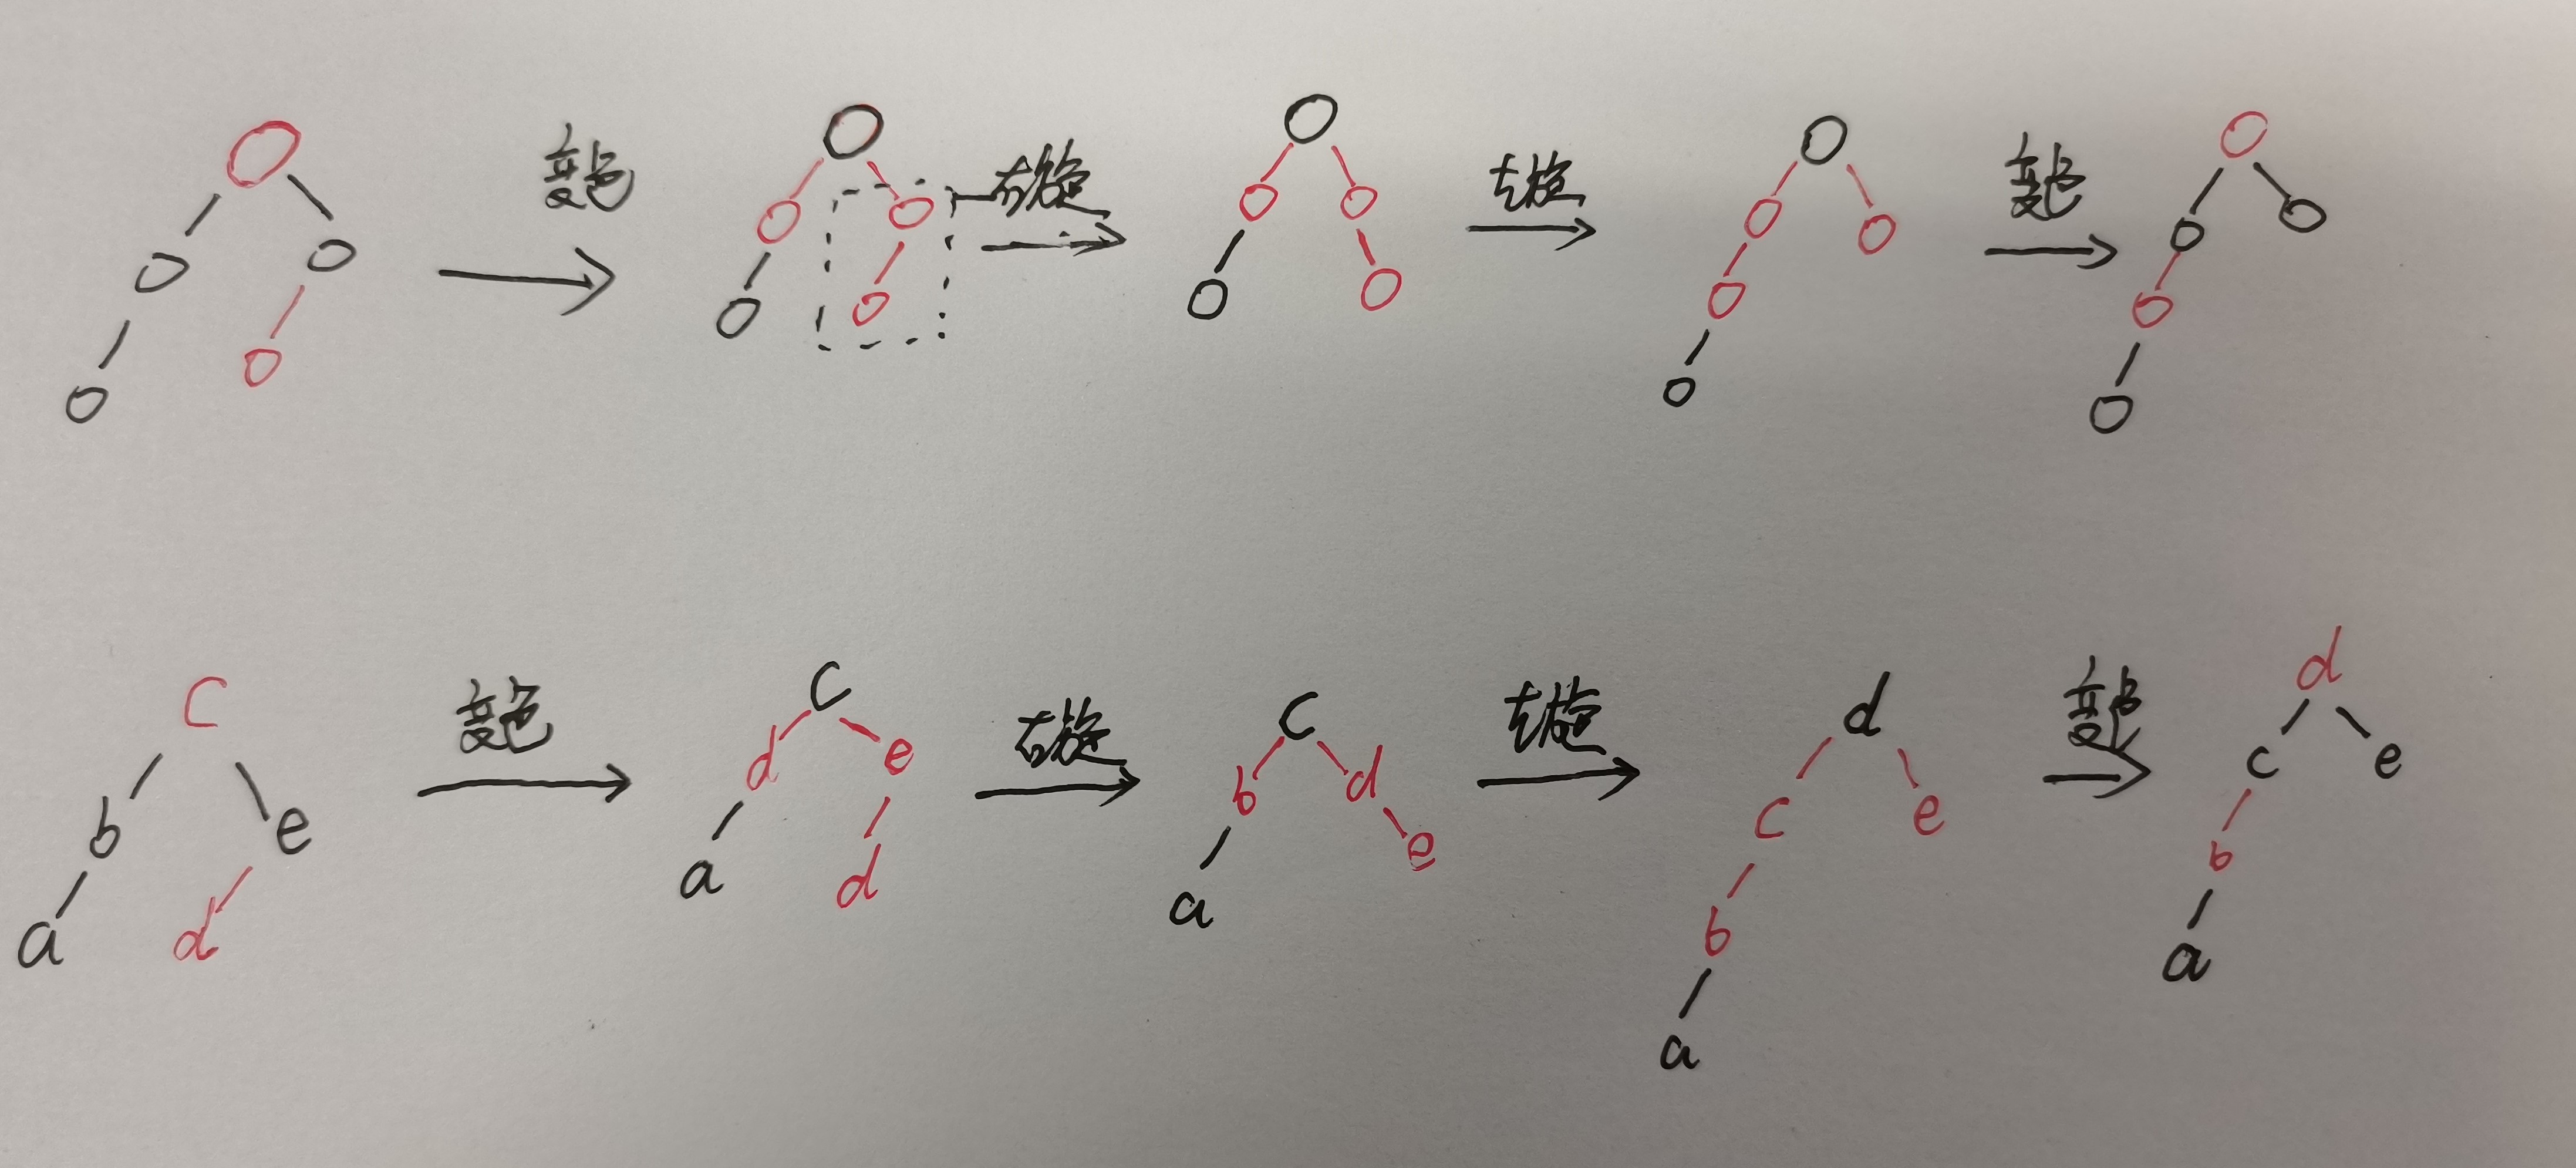 变色
右旋
左旋
变色
C
b e
a d
变色
C
d e
a d
右旋
C
b d
a e
左旋
d
c e
b
a
变色
d
c e
b
a